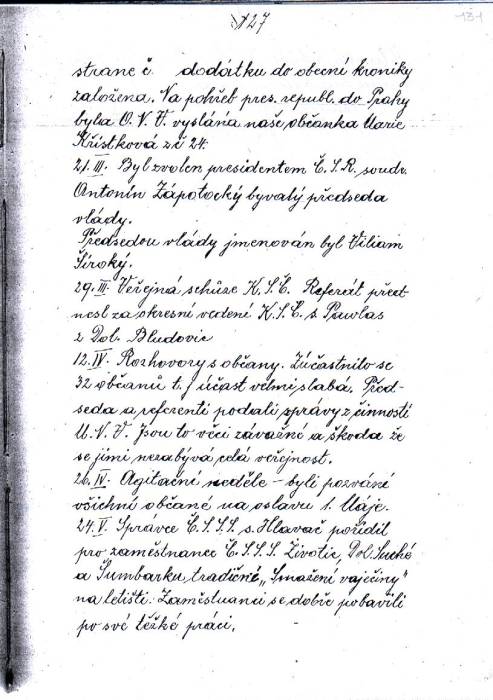 127
131
strane č. dodatku do obecní kroniky
založena. Na pohřeb pres. republ. do Prahy
byla O.N.V. vyslána naše občanka Marie
Křístková z č 24.
21. III. Byl zvolen presidentem Č.S.R. soudr.
Antonín Zápotocký bývalý předseda
vlády.
Předsedou vlády jmenován byl Viliam
Široký.
29. III. Veřejná schůze K.S.Č. Referát před-
nesl za okresní vedení K.S.Č. s. Pawlas
z Dol. Bludovic
12. IV. Rozhovory s občany. Zúčastnilo se
32 občanů t.j účast velmi slabá. Před-
seda a referenti podali zprávy z činnosti
M.N.V. Jsou to věci závažné a škoda že
se jimi nezabývá celá veřejnost.
26. IV. Agitační neděle – byli pozváni
všichni občané na oslavu 1. Máje.
24. V. Správce Č.S.S.S s. Hlavač pořídil
pro zaměstnance Č.S.S.S Životic, Dol. Suché
a Šumbarku tradičné „Smažení vajíčiny"
na letišti. Zaměstnanci se dobře pobavili
po své těžké práci.